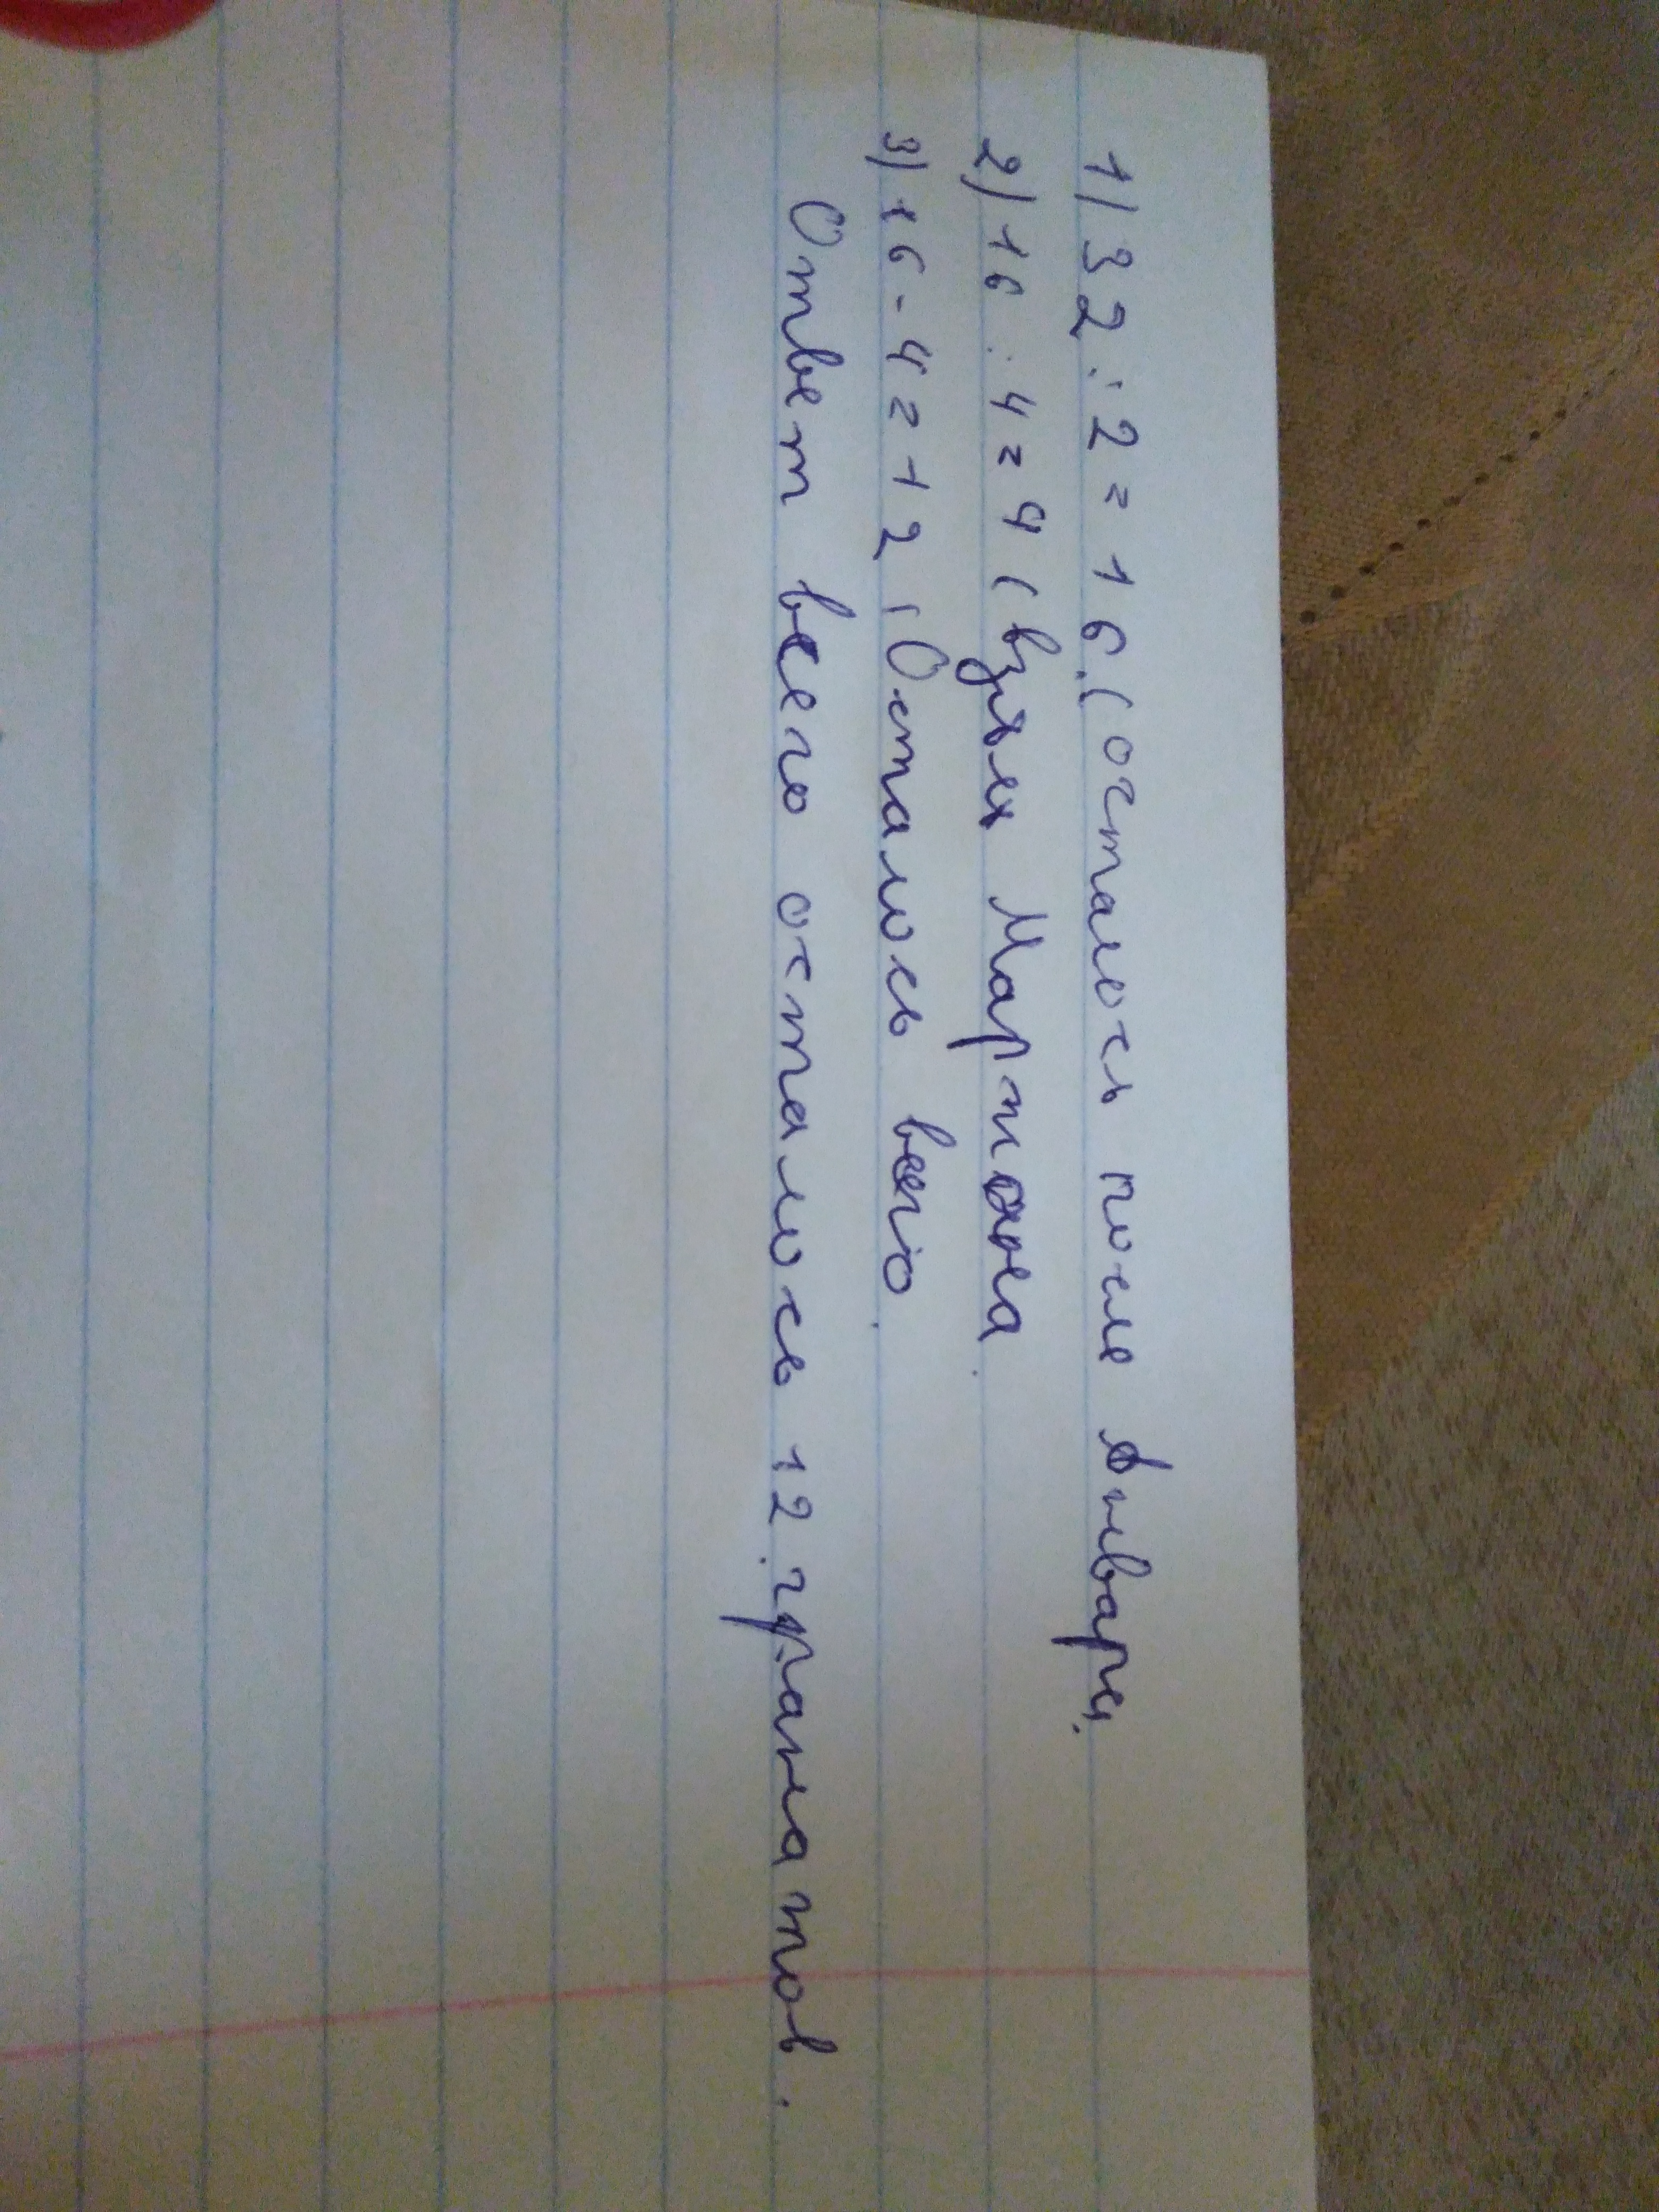 1) 32 : 2 = 16. (осталось после Анвара.
2) 16 : 4 = 4 (взяла Мартона.
3) 16 - 4 = 12 (Осталось всего.
Ответ всего осталось 12 гранатов.